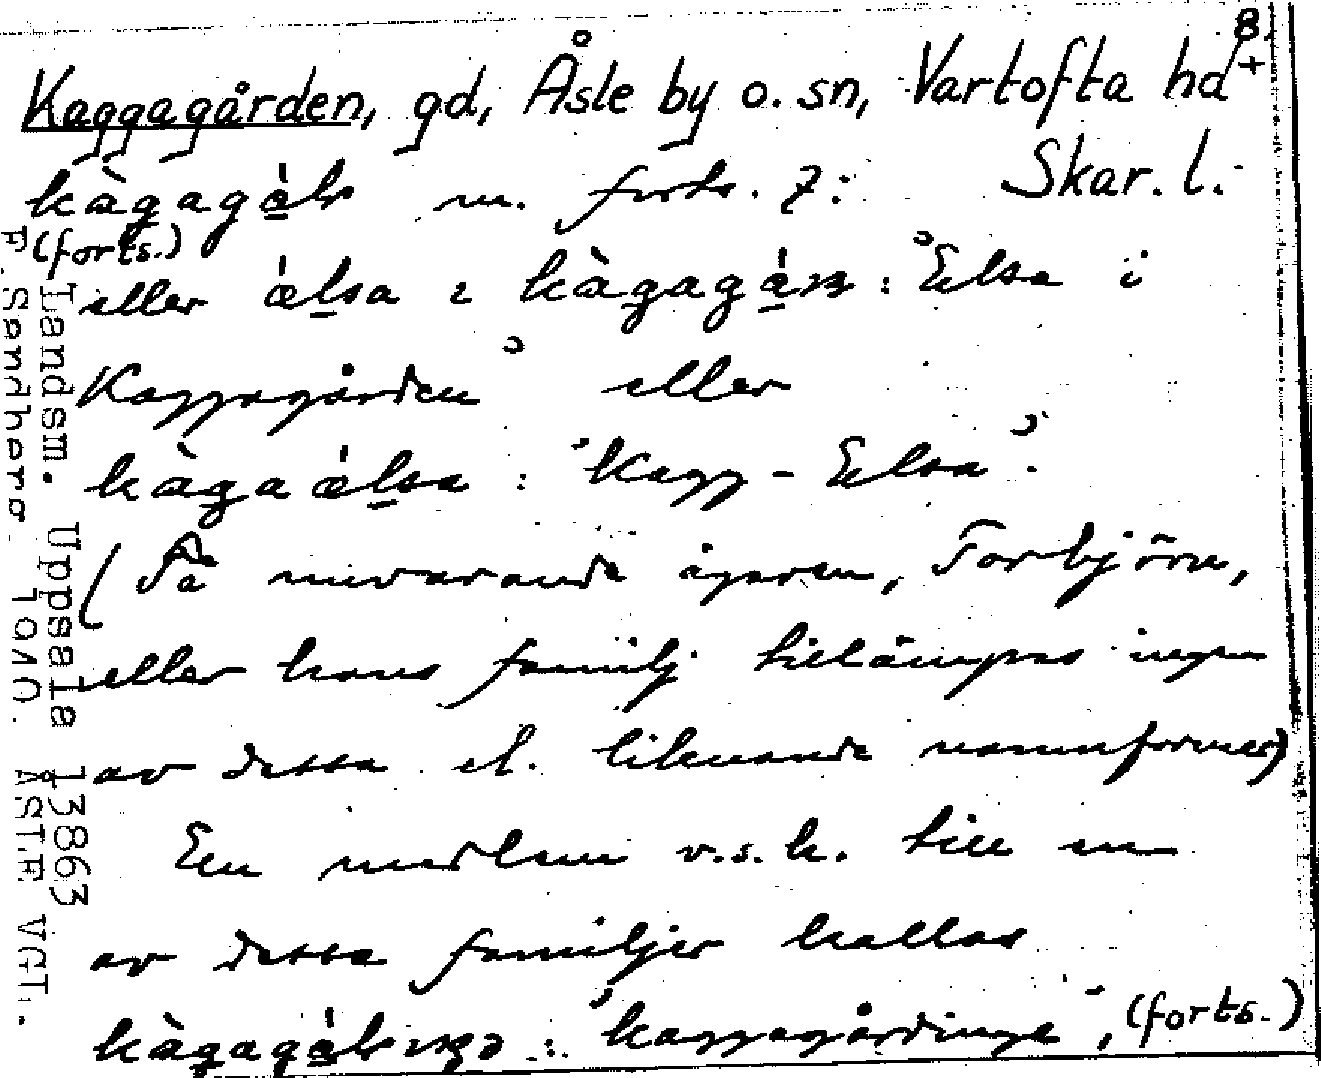 8.
Kaggagården, gd, Åsle by o. sn, Vartofta hd +
Skar. l.
kàgagá̱ɽ m. forts. 7:
(forts.)
eller ǽlsa i kàgagá̱ɳ: "Elsa i
Kaggagården" eller
kàgaǽlsa: "Kagg-Elsa".
(På nuvarande ägaren, Torbjörn,
eller hans familj tillämpas ingen
av dessa el. liknande namnformer)
En medlem v.s.h. till en
av dessa familjer kallas
"kaggagårdinge", (forts.)
Landsm. Uppsala 13863
F. Sandberg 1940. ÅSLE VGT.